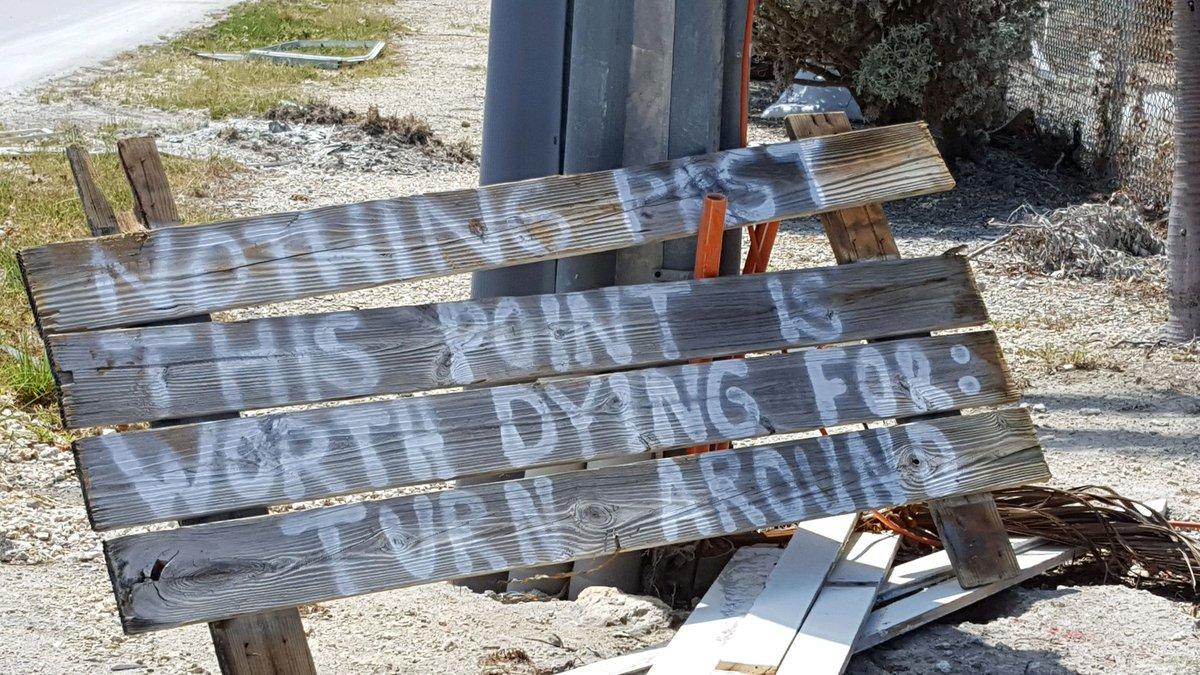 NOTHING PAST
THIS POINT IS
WORTH DYING FOR:
TURN AROUND